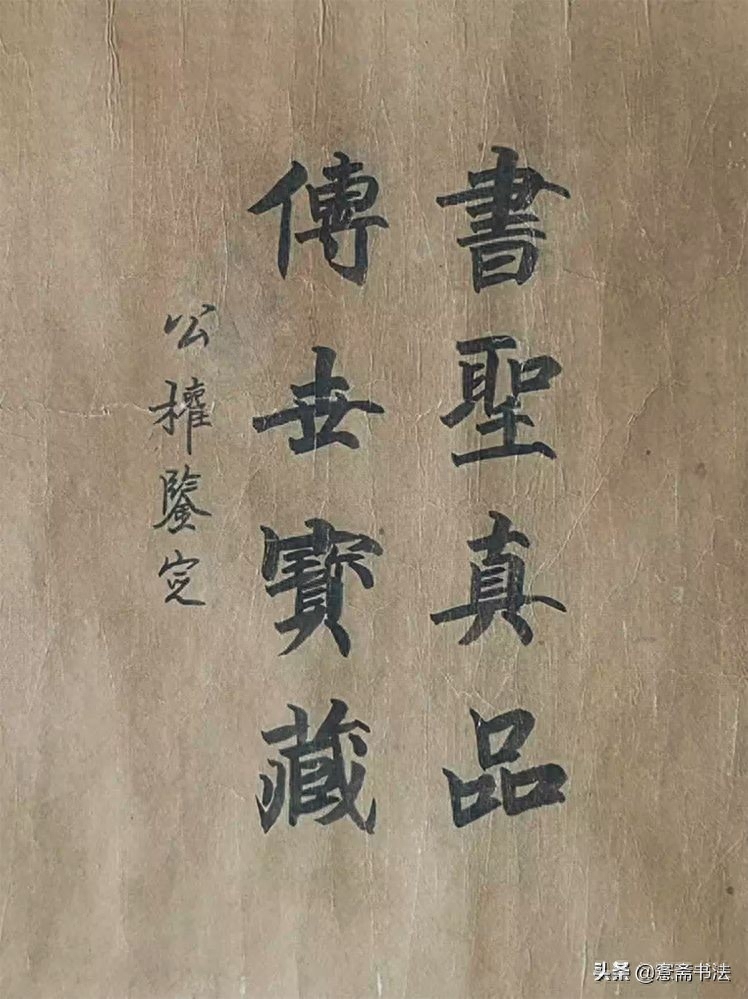 書聖真品
傳世寶藏
公權鑒定
头条@寋斋书法